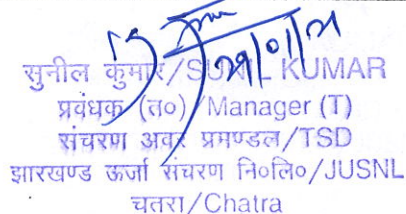 29/01/21
सुनील कुमार/SUNIL KUMAR
प्रवंधक (त०)/Manager (T)
संचरण अवर प्रमण्डल/TSD
झारखण्ड ऊर्जा संचरण नि०लि०/JUSNL
चतरा/Chatra